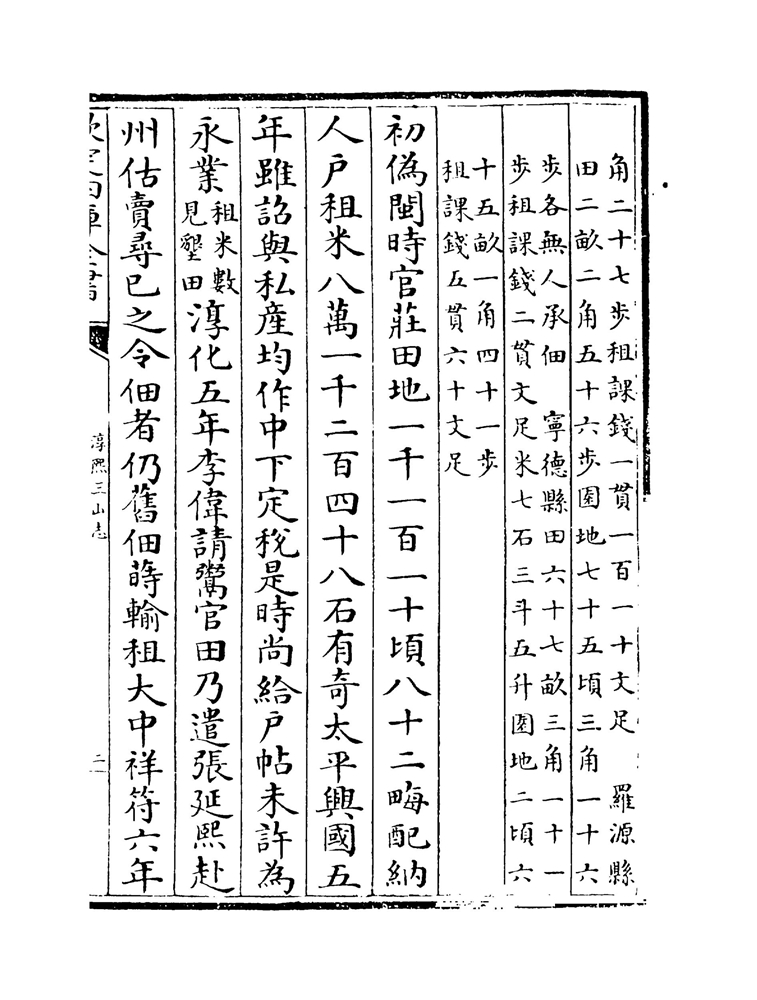 角二十七步租課錢一貫一百一十文足　羅源縣
田二畝二角五十六步園地七十五頃三角一十六
步各無人承佃　寧德縣田六十七畝三角一十一
步租課錢二貫文足米七石三斗五升園地二頃六
十五畝一角四十一步
租課錢五貫六十文足
初偽閩時官莊田地一千一百一十頃八十二畮配納
人戶租米八萬一千二百四十八石有奇太平興國五
年雖詔與私產均作中下定稅是時尚給戶帖未許為
永業租米數見墾田淳化五年李偉請鬻官田乃遣張延熙赴
州估賣尋已之令佃者仍舊佃蒔輸租大中祥符六年
欽定四庫全書
淳熙三山志
二